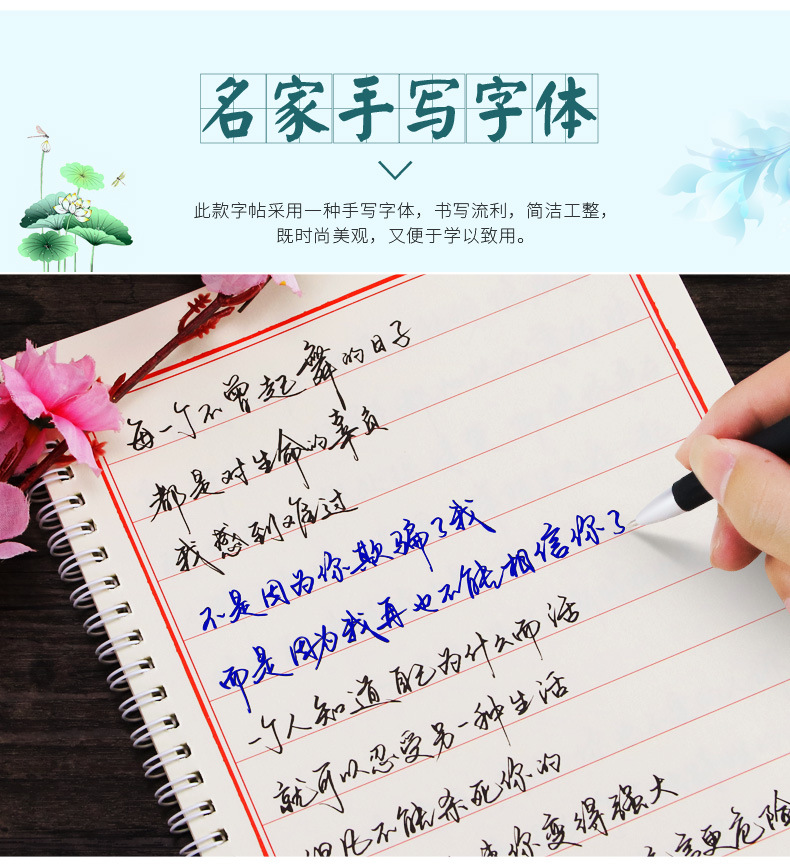 名家手写字体
此款字帖采用一种手写字体，书写流利，简洁工整，
既时尚美观，又便于学以致用。
每一个不曾起舞的日子
都是对生命的辜负
我感到难过
不是因为你欺骗了我
而是因为我再也不能相信你了
一个人知道自己为什么而活
就可以忍受另一种生活
不能杀死你的
你变得强大
更危险